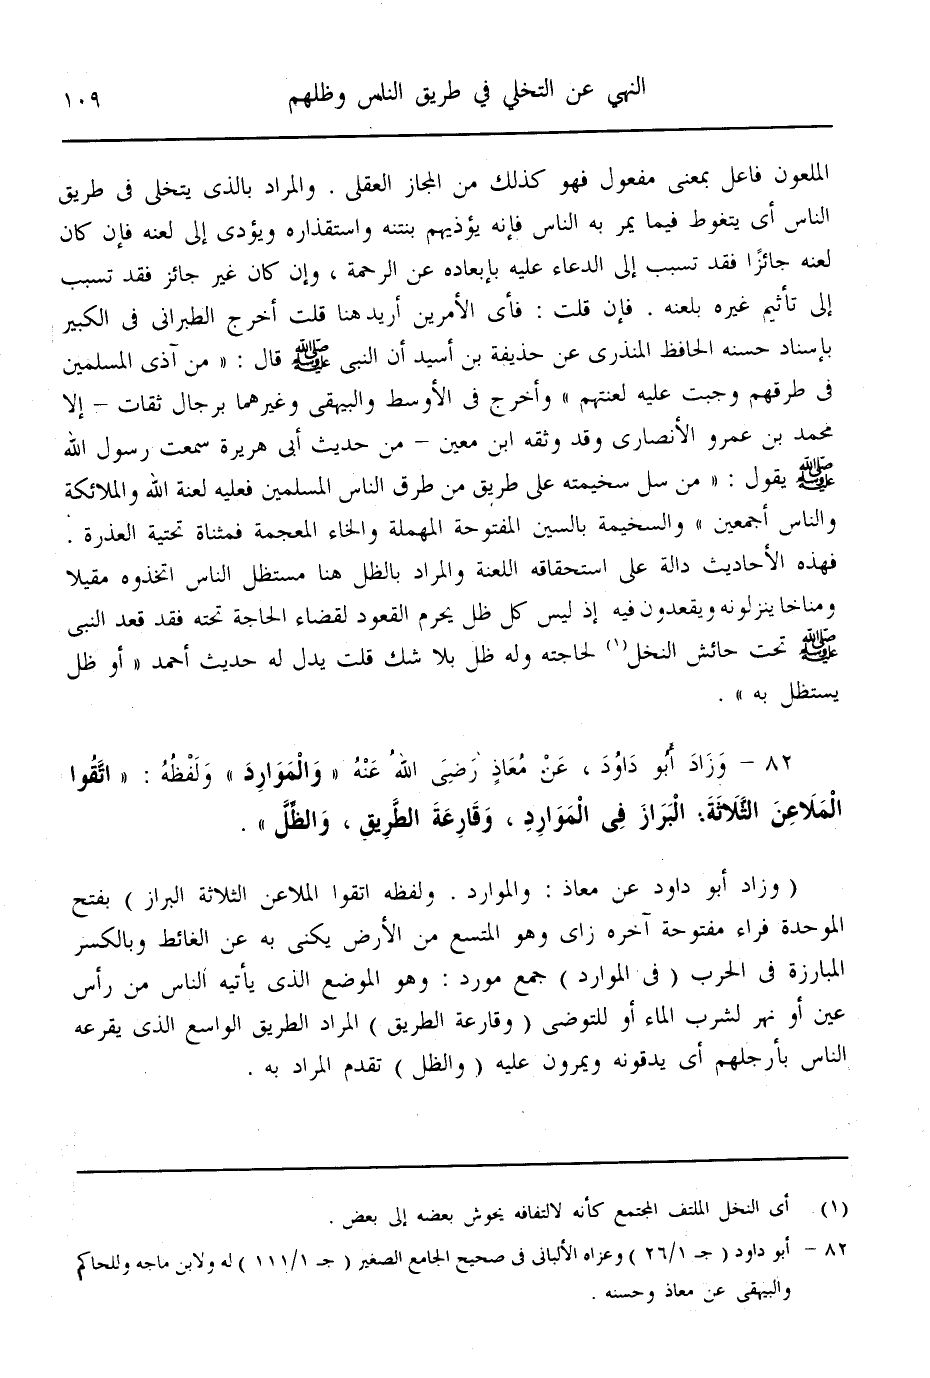 النهي عن التخلي في طريق الناس وظلهم ١٠٩
الملعون فاعل بمعنى مفعول فهو كذلك من المجاز العقلى . والمراد بالذى يتخلى فى طريق
الناس أى يتغوط فيما يمر به الناس فإنه يؤذيهم بنتنه واستقذاره ويؤدى إلى لعنه فإن كان
لعنه جائزًا فقد تسبب إلى الدعاء عليه بإبعاده عن الرحمة ، وإن كان غير جائز فقد تسبب
إلى تأثيم غيره بلعنه . فإن قلت : فأى الأمرين أريد هنا قلت أخرج الطبرانى فى الكبير
بإسناد حسنه الحافظ المنذرى عن حذيفة بن أسيد أن النبى ﷺ قال : « من آذى المسلمين
فى طرقهم وجبت عليه لعنتهم » وأخرج فى الأوسط والبيهقى وغيرهما برجال ثقات – إلا
محمد بن عمرو الأنصارى وقد وثقه ابن معين – من حديث أبى هريرة سمعت رسول الله
ﷺ يقول : « من سل سخيمته على طريق من طرق الناس المسلمين فعليه لعنة الله والملائكة
والناس أجمعين » والسخيمة بالسين المفتوحة المهملة والخاء المعجمة فمثناة تحتية العذرة .
فهذه الأحاديث دالة على استحقاقه اللعنة والمراد بالظل هنا مستظل الناس اتخذوه مقيلا
ومناخا ينزلونه ويقعدون فيه إذ ليس كل ظل يحرم القعود لقضاء الحاجة تحته فقد قعد النبى
ﷺ تحت حائش النخل(١) لحاجته وله ظل بلا شك قلت يدل له حديث أحمد « أو ظل
يستظل به » .
٨٢ – وَزَادَ أَبُو دَاوُدَ ، عَنْ مُعَاذٍ رَضِىَ اللهُ عَنْهُ « وَالْمَوَارِدَ » وَلَفْظُهُ : « اتَّقُوا
الْمَلَاعِنَ الثَّلَاثَةَ: الْبَرَازَ فِى الْمَوَارِدِ ، وَقَارِعَةَ الطَّرِيقِ ، وَالظِّلَّ » .
( وزاد أبو داود عن معاذ : والموارد . ولفظه اتقوا الملاعن الثلاثة البراز ) بفتح
الموحدة فراء مفتوحة آخره زاى وهو المتسع من الأرض يكنى به عن الغائط وبالكسر
المبارزة فى الحرب ( فى الموارد ) جمع مورد : وهو الموضع الذى يأتيه الناس من رأس
عين أو نهر لشرب الماء أو للتوضى ( وقارعة الطريق ) المراد الطريق الواسع الذى يقرعه
الناس بأرجلهم أى يدقونه ويمرون عليه ( والظل ) تقدم المراد به .
(١) أى النخل الملتف المجتمع كأنه لالتفافه يحوش بعضه إلى بعض .
٨٢ – أبو داود ( جـ ٢٦/١ ) وعزاه الألبانى فى صحيح الجامع الصغير ( جـ ١١١/١ ) له ولابن ماجه وللحاكم
والبيهقى عن معاذ وحسنه .